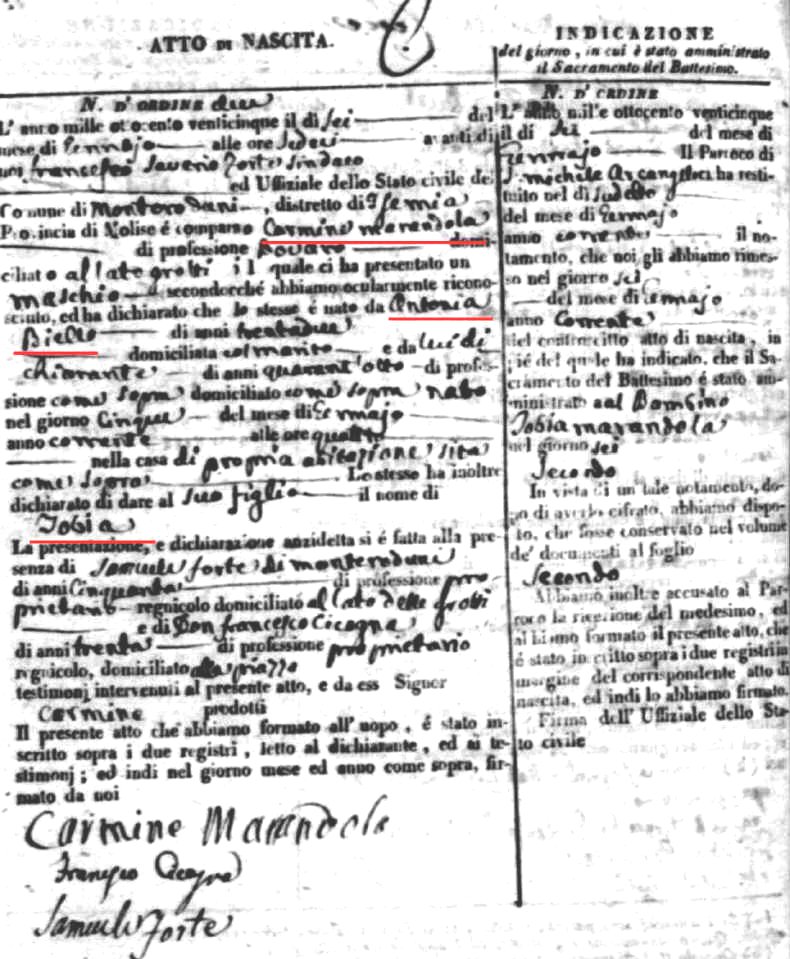 ATTO DI NASCITA.
N. D'ORDINE due
L'anno mille ottocento venticinque il dì sei del
mese di Gennajo alle ore sedeci avanti di
noi francesco Saverio Forte Sindaco
ed Uffiziale dello Stato civile del
Comune di Monteroduni, distretto di Isernia
Provincia di Molise é comparso Carmine marandola
di professione domi-
ciliato al lato grotti il quale ci ha presentato un
maschio secondocché abbiamo ocularmente ricono-
sciuto, ed ha dichiarato che lo stesso é nato da Antonia
Biello di anni trentadue
domiciliata col marito e da lui di-
chiarante di anni quarant'otto di profes-
sione come sopra domiciliato come sopra nato
nel giorno Cinque del mese di Gennajo
anno corrente alle ore quattro
nella casa di propria abitazione sita
come sopra Lo stesso ha inoltre
dichiarato di dare al suo figlio il nome di
Tobia
La presentazione, e dichiarazione anzidetta si é fatta alla pre-
senza di Samuele Forte di monteroduni
di anni Cinquanta di professione pro-
prietario regnicolo domiciliato al lato delle grotti
e di Don francesco Cicogna
di anni trenta di professione proprietario
regnicolo, domiciliato alla piazza
testimonj intervenuti al presente atto, e da ess Signor
Carmine prodotti
Il presente atto che abbiamo formato all'uopo, é stato in-
scritto sopra i due registri, letto al dichiarante, ed ai te-
stimonj; ed indi nel giorno mese ed anno come sopra, fir-
mato da noi
Carmine Marandola
Francesco Cicogna
Samuele Forte
INDICAZIONE
del giorno, in cui é stato amministrato
il Sacramento del Battesimo.
N. D'ORDINE
L'anno mille ottocento venticinque
il di sei del mese di
Gennajo Il Parroco di
S. michele Arcangelo ci ha resti-
tuito nel dì sudetto
del mese di Gennajo
anno corrente il no-
tamento, che noi gli abbiamo rimes-
so nel giorno sei
del mese di Gennajo
anno Corrente
del contoscritto atto di nascita, in
pié del quale ha indicato, che il Sa-
cramento del Battesimo é stato am-
ministrato al Bambino
Tobia marandola
nel giorno sei
Secondo
In vista di un tale notamento, do-
po di averlo cifrato, abbiamo dispo-
sto, che fosse conservato nel volume
de' documenti al foglio
Secondo
Abbiamo inoltre accusato al Par-
roco la ricezione del medesimo, ed
abbiamo formato il presente atto, che
é stato inscritto sopra i due registri in
margine del corrispondente atto di
nascita, ed indi lo abbiamo firmato.
Firma dell'Uffiziale dello Sta-
to civile